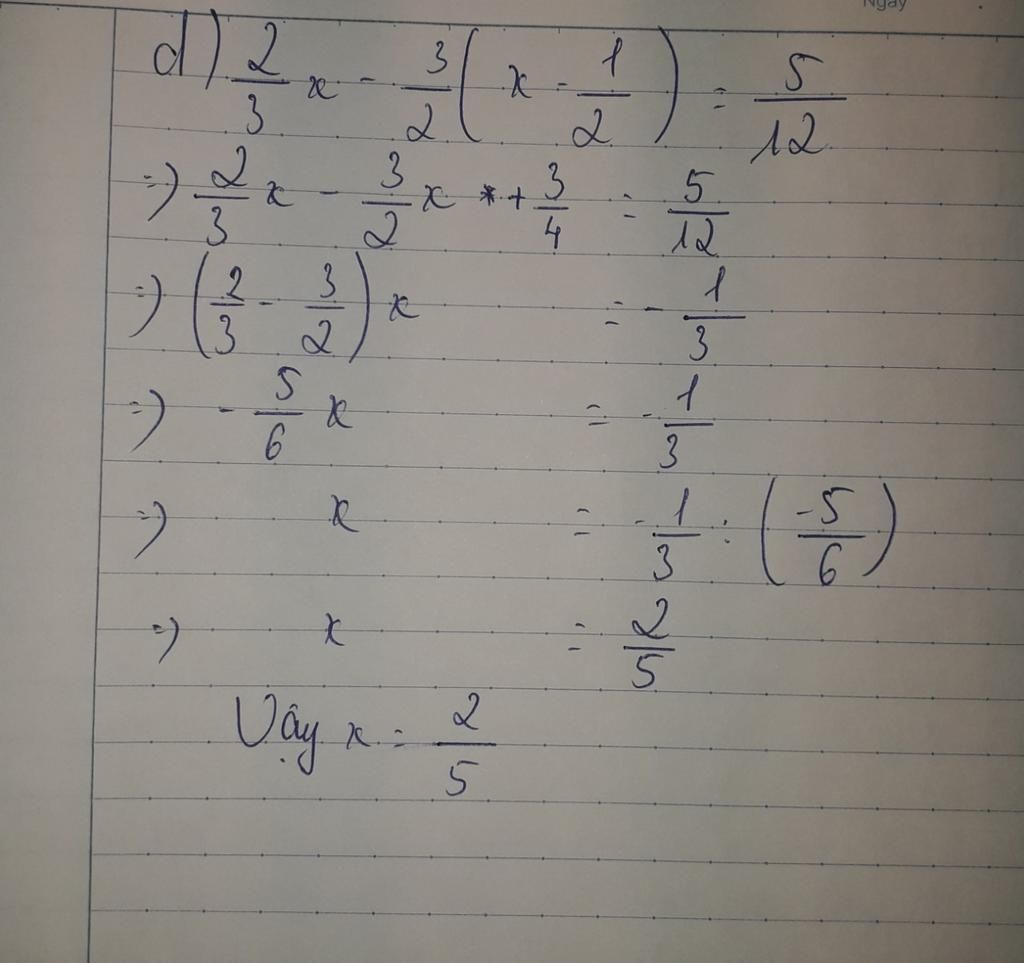 Ngày
d) 2/3 x - 3/2 ( x - 1/2 ) = 5/12
=> 2/3 x - 3/2 x + 3/4 = 5/12
=> ( 2/3 - 3/2 ) x = - 1/3
=> - 5/6 x = - 1/3
=> x = - 1/3 : ( -5/6 )
=> x = 2/5
Vậy x = 2/5